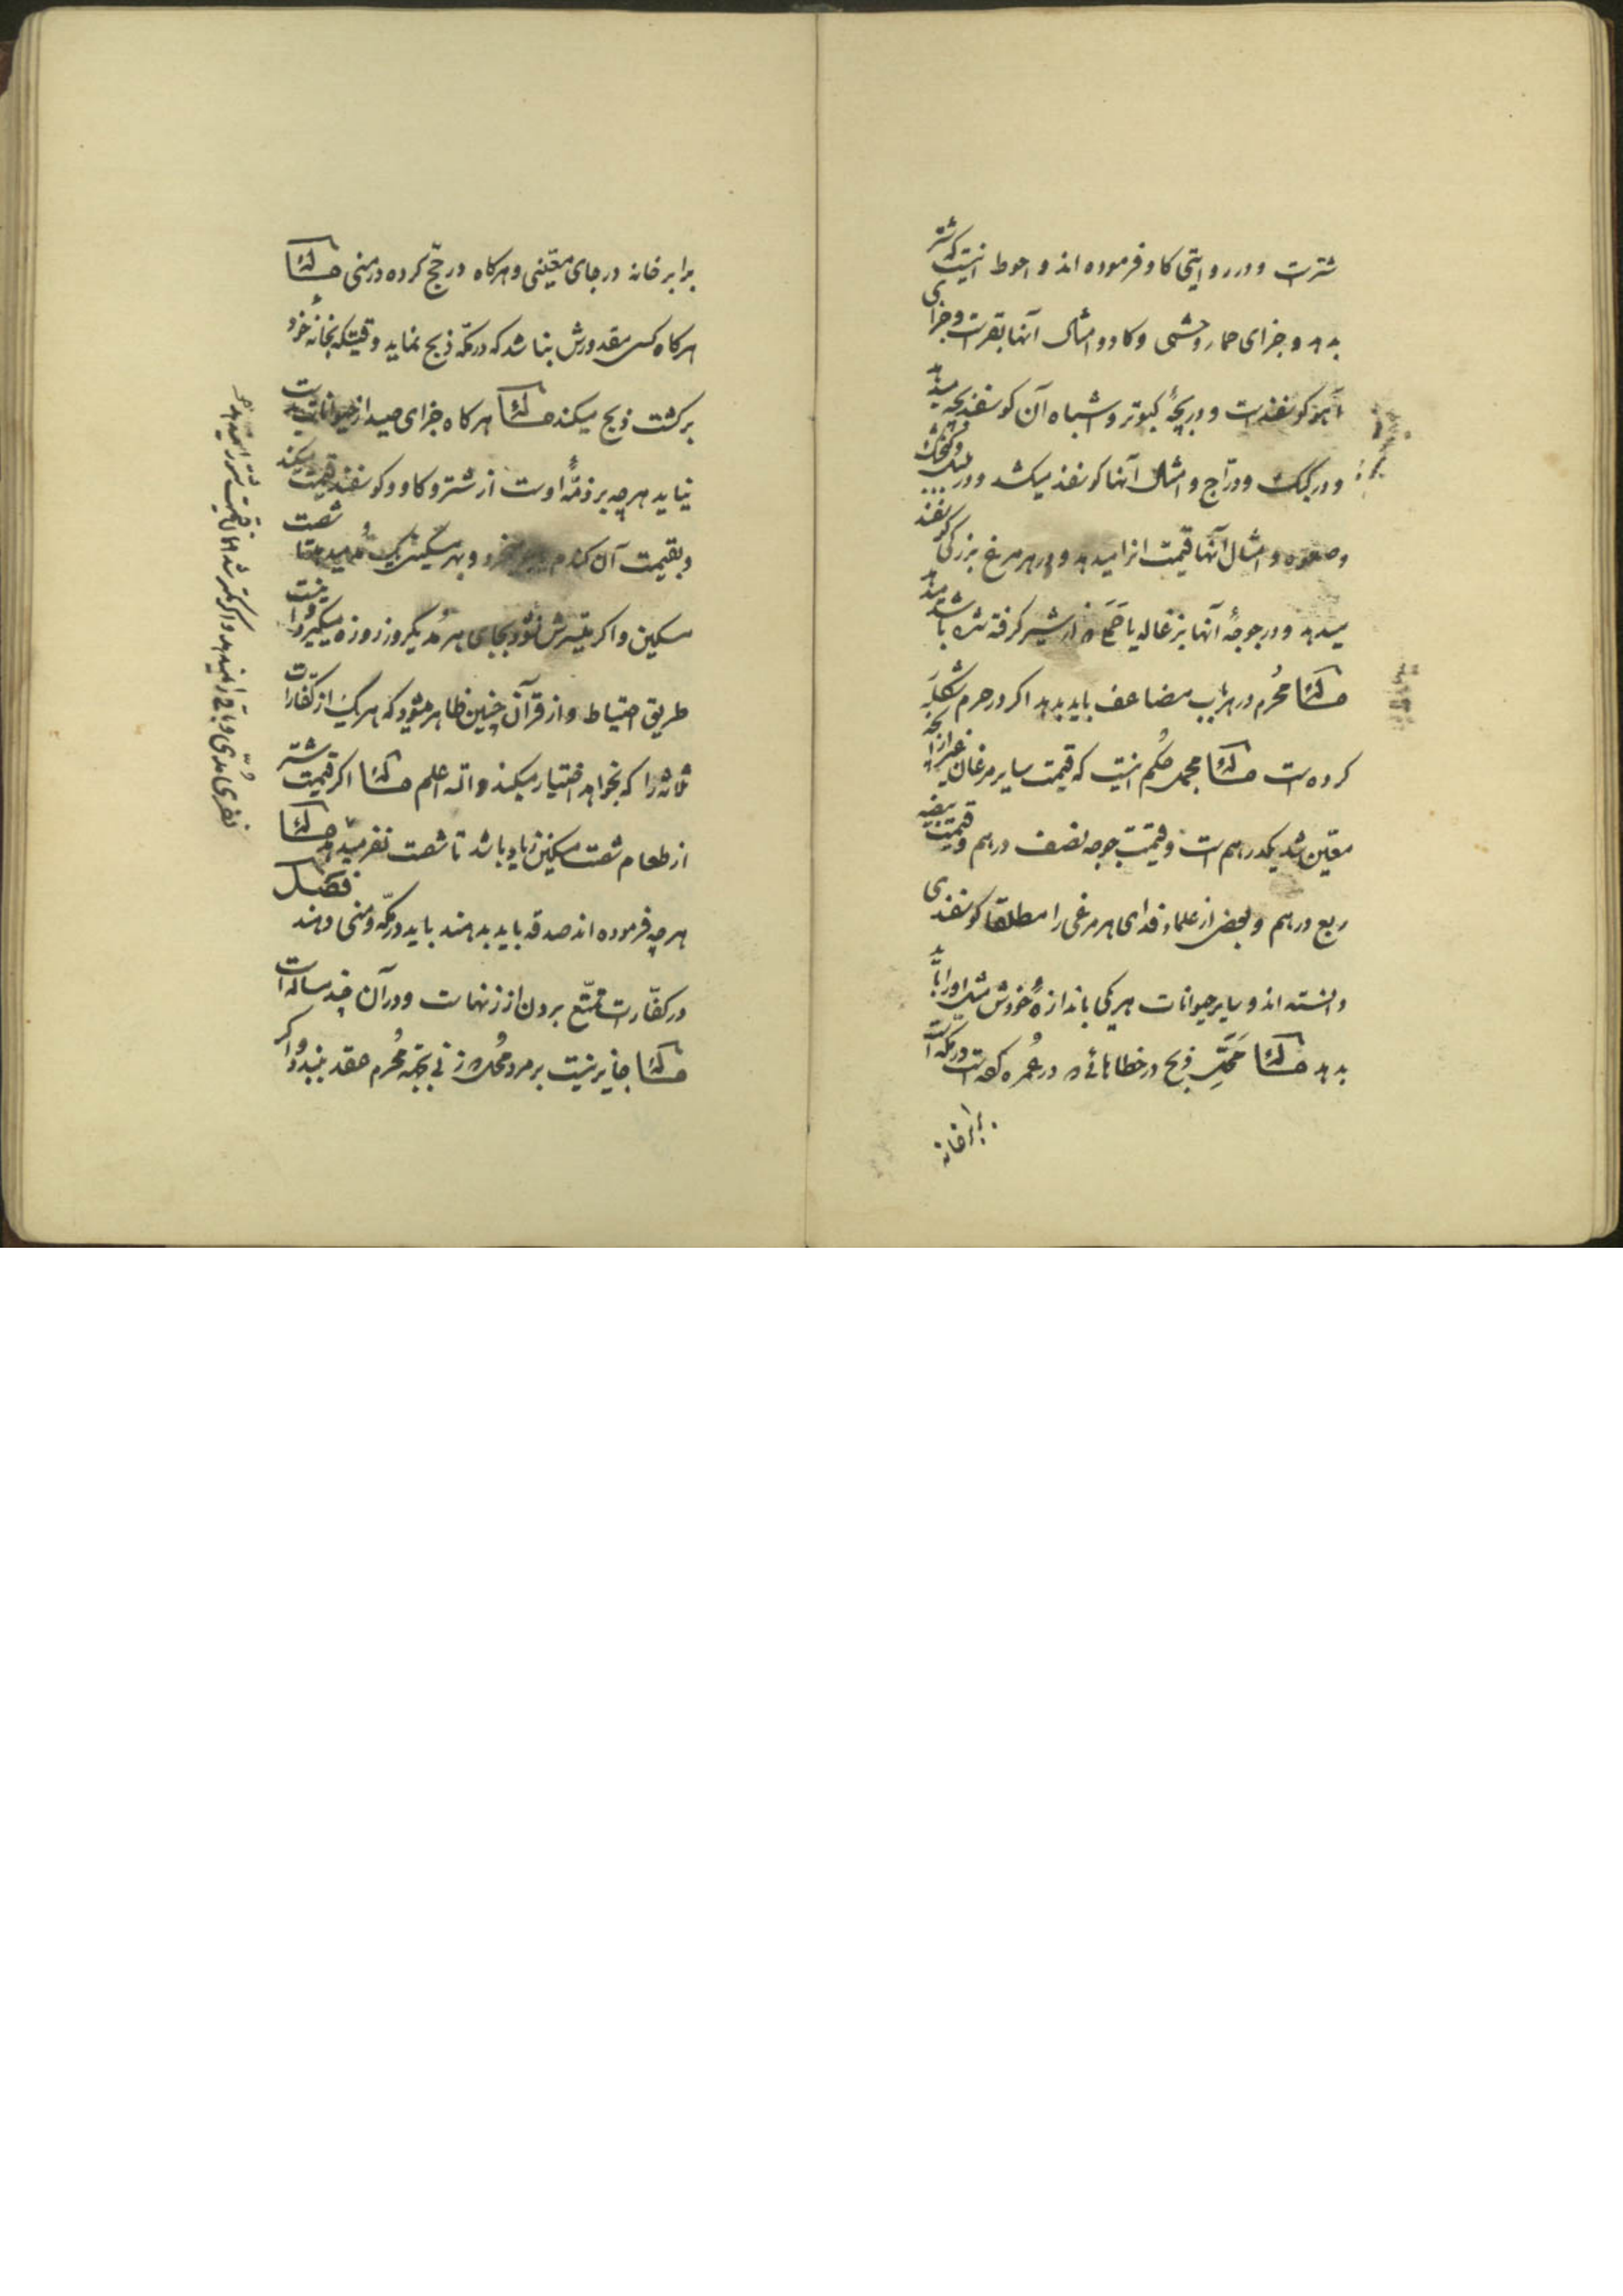 شترست و در روایتی کاو فرموده اند و احوط اینست که شتر
بدهد و جزای حمار وحشی و کاو و امثال آنها بقرست و جزای
آهو کوسفندست و در بچهٔ کبوتر و اشباه آن کوسفند بچه میدهد
و در کبک و درّاج و امثال آنها کوسفند میکشد و در
و صعوه و امثال آنها قیمت انرا میدهد و در هر مرغ بزرکی کوسفند
میدهد و در جوجهٔ آنها بزغاله یا از شیر کرفته شده باشد میدهد
مسئله مُحرم در هر باب مضاعف باید بدهد اکر در حرم
کرده است مسئله مجمد حکم اینست که قیمت سایر مرغان غیر از آنچه
معیّن شد یکدرهم است و قیمت جوجه نصف درهم و قیمت بیضه
ربع درهم و بعض از علماء فدای هر مرغی را مطلقا کوسفندی
دانسته اند و سایر حیوانات هر یکی باندازهٔ خودش
بدهد مسئله محلّ ذبح در خطاهائی که در عُمره کرده است در مکّه است
برابر خانه
برابر خانه در جای معیّنی و هرکاه در حجّ کرده در منی مسئله
هرکاه کسی مقدورش نباشد که در مکّه ذبح نماید وقتیکه بخانهٔ خود
برکشت ذبح میکند مسئله هرکاه جزای صید از حیوانات بدست
نیاید هرچه بر ذمّهٔ اوست از شتر و کاو و کوسفند قیمت میکند
و بقیمت آن کندم میخرد و بهر مسکینی یک مُد میدهد تا شصت
مسکین و اکر میّسرش نشود بجای هر مُد یکروز روزه میکیرد و اینست
طریق احتیاط و از قرآن چنین ظاهر میشود که هر یک از کفّارات
ثلاثه را که بخواهد اختیار میکند والله اعلم مسئله اکر قیمت شتر
از طعام شصت مسکین زیاد باشد تا شصت نفر میدهد مسئله
هرچه فرموده اند صدقه باید بدهند باید در مکّه و منی دهند فصل
در کفّارات تمتّع بردن از زنهاست و در آن چند مساله است
مسئله جایز نیست بر مرد مُحل که زنی بجهة مُحرم عقد ببندد و اکر